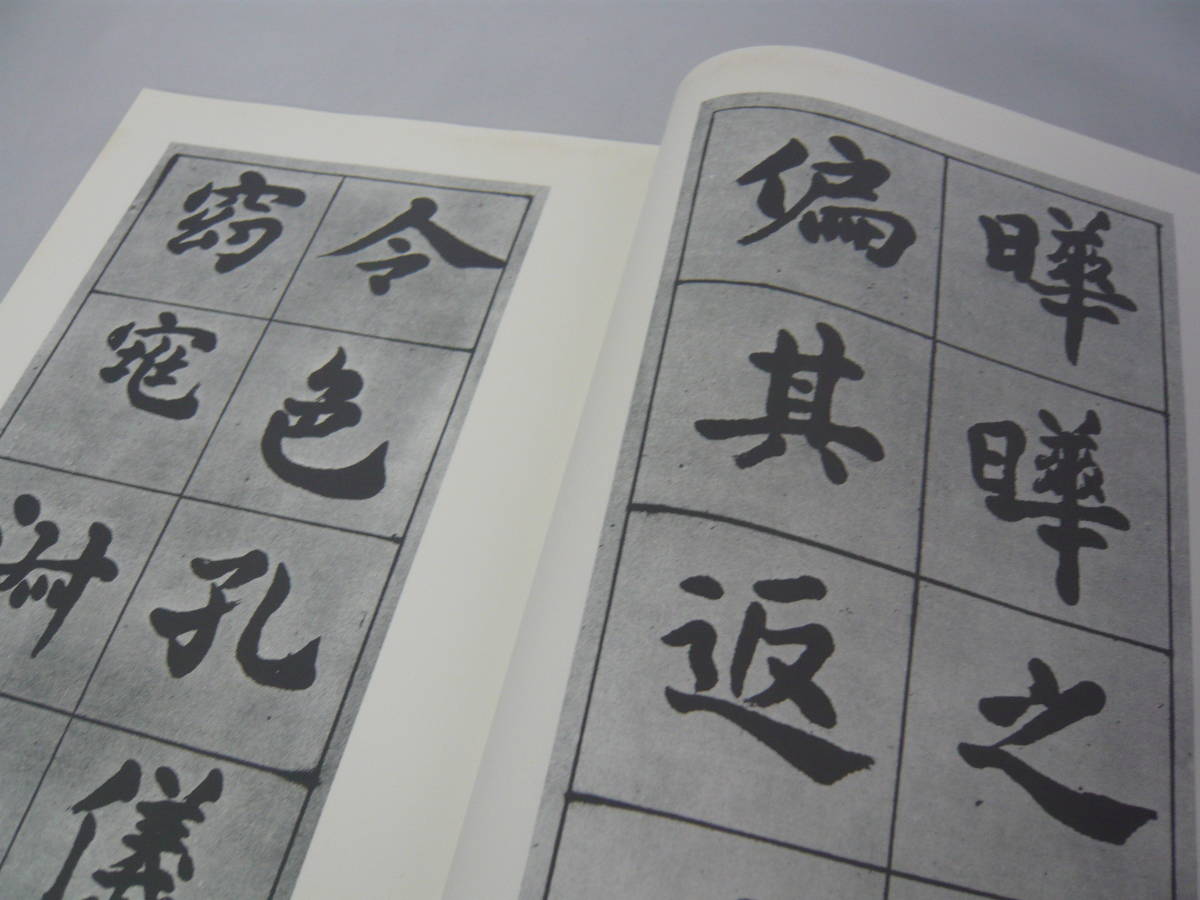 曄曄之
偏其返
令色孔儀
窈窕淑